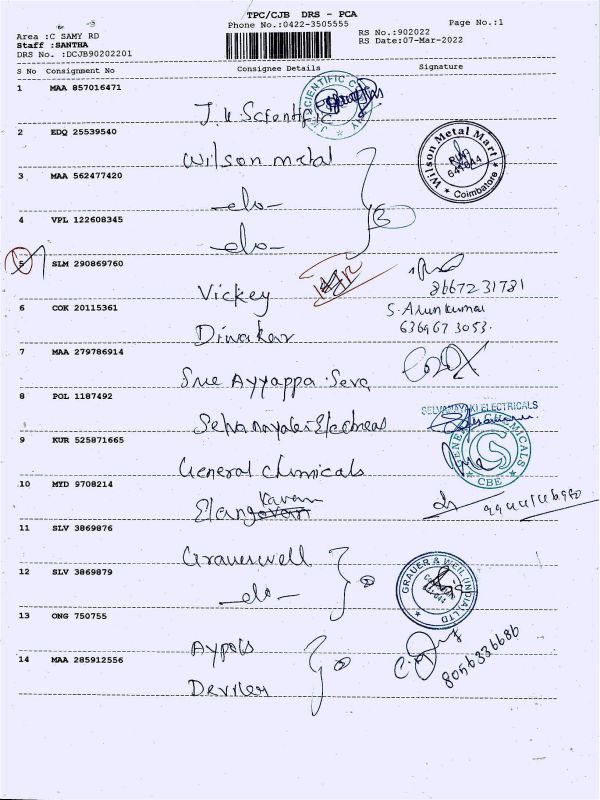 TPC/CJB DRS - PCA
Phone No.:0422-3505555
Page No.:1
Area :C SAMY RD
Staff :SANTHA
DRS No. :DCJB90202201
RS No.:902022
RS Date:07-Mar-2022
S No Consignment No Consignee Details Signature
1 MAA 857016471
J.K Scientific
2 EDQ 25539540
Wilson metal
Wilson Metal Mart
Coimbatore
3 MAA 562477420
-do-
3
4 VPL 122608345
-do-
5 SLM 290869760
Vickey
8667231781
6 COK 20115361
Diwakar
S. Arunkumar
6369673053.
7 MAA 279786914
Sree Ayyappa Seva
8 POL 1187492
Selvanayaki Electricals
SELVANAYAKI ELECTRICALS
9 KUR 525871665
General Chemicals
GENERAL CHEMICALS
CBE
10 MYD 9708214
Elangovan
11 SLV 3869876
Grauerwell
12 SLV 3869879
-do-
2
GRAUER & WEIL (INDIA) LTD
13 ONG 750755
Aypols
14 MAA 285912556
2
8056336686